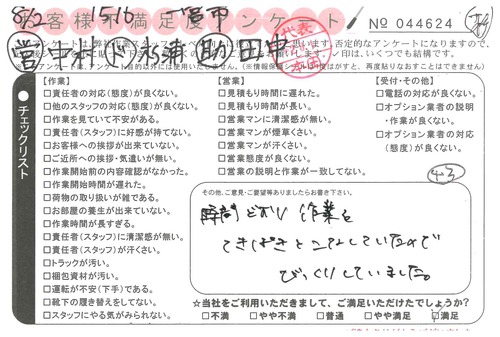 8/2 15/16 一宮市
お客様満足アンケート No 044624
営 中村 ド 永浦 助 田中
チェックリスト
【作業】
□責任者の対応(態度)が良くない。
□他のスタッフの対応(態度)が良くない。
□作業を見ていて不安がある。
□責任者(スタッフ)に好感が持てない。
□お客様への挨拶が出来ていない。
□ご近所への挨拶・気遣いが無い。
□作業開始前の内容確認がなかった。
□作業開始時間が遅れた。
□荷物の取り扱いが雑である。
□お部屋の養生が出来ていない。
□作業時間が長すぎる。
□責任者(スタッフ)に清潔感が無い。
□責任者(スタッフ)が汗くさい。
□トラックが汚い。
□梱包資材が汚い。
□運転が不安(下手)である。
□靴下の履き替えをしてない。
□スタッフにやる気がみられない。
【営業】
□見積もり時間に遅れた。
□見積もり時間が長い。
□営業マンに清潔感が無い。
□営業マンが煙草くさい。
□営業マンが汗くさい。
□営業態度が良くない。
□営業の説明と作業が一致してない。
【受付・その他】
□電話の対応が良くない。
□オプション業者の説明・作業が良くない。
□オプション業者の対応(態度)が良くない。
43
その他、ご意見・ご要望等ありましたらお書き下さい。
時間どおり作業を
てきぱきとこなしていたので
びっくりしていました。
☆当社をご利用いただきまして、ご満足いただけたでしょうか?
□不満 □やや不満 □普通 □やや満足 □満足